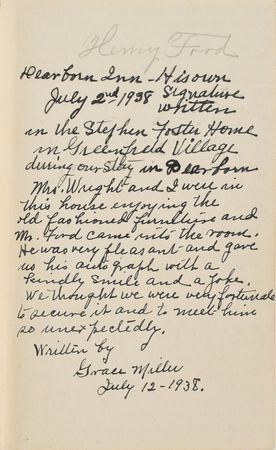 Henry Ford
Dearborn Inn - His own
July 2nd 1938 Signature
written
in the Stephen Foster Home
in Greenfield Village
during our Stay in Dearborn
Mrs. Wright and I were in
this house enjoying the
old fashioned furniture and
Mr. Ford came into the room.
He was very pleasant and gave
us his autograph with a
kindly smile and a joke.
We thought we were very fortunate
to secure it and to meet him
so unexpectedly.
Written by
Grace Miller
July 12-1938.